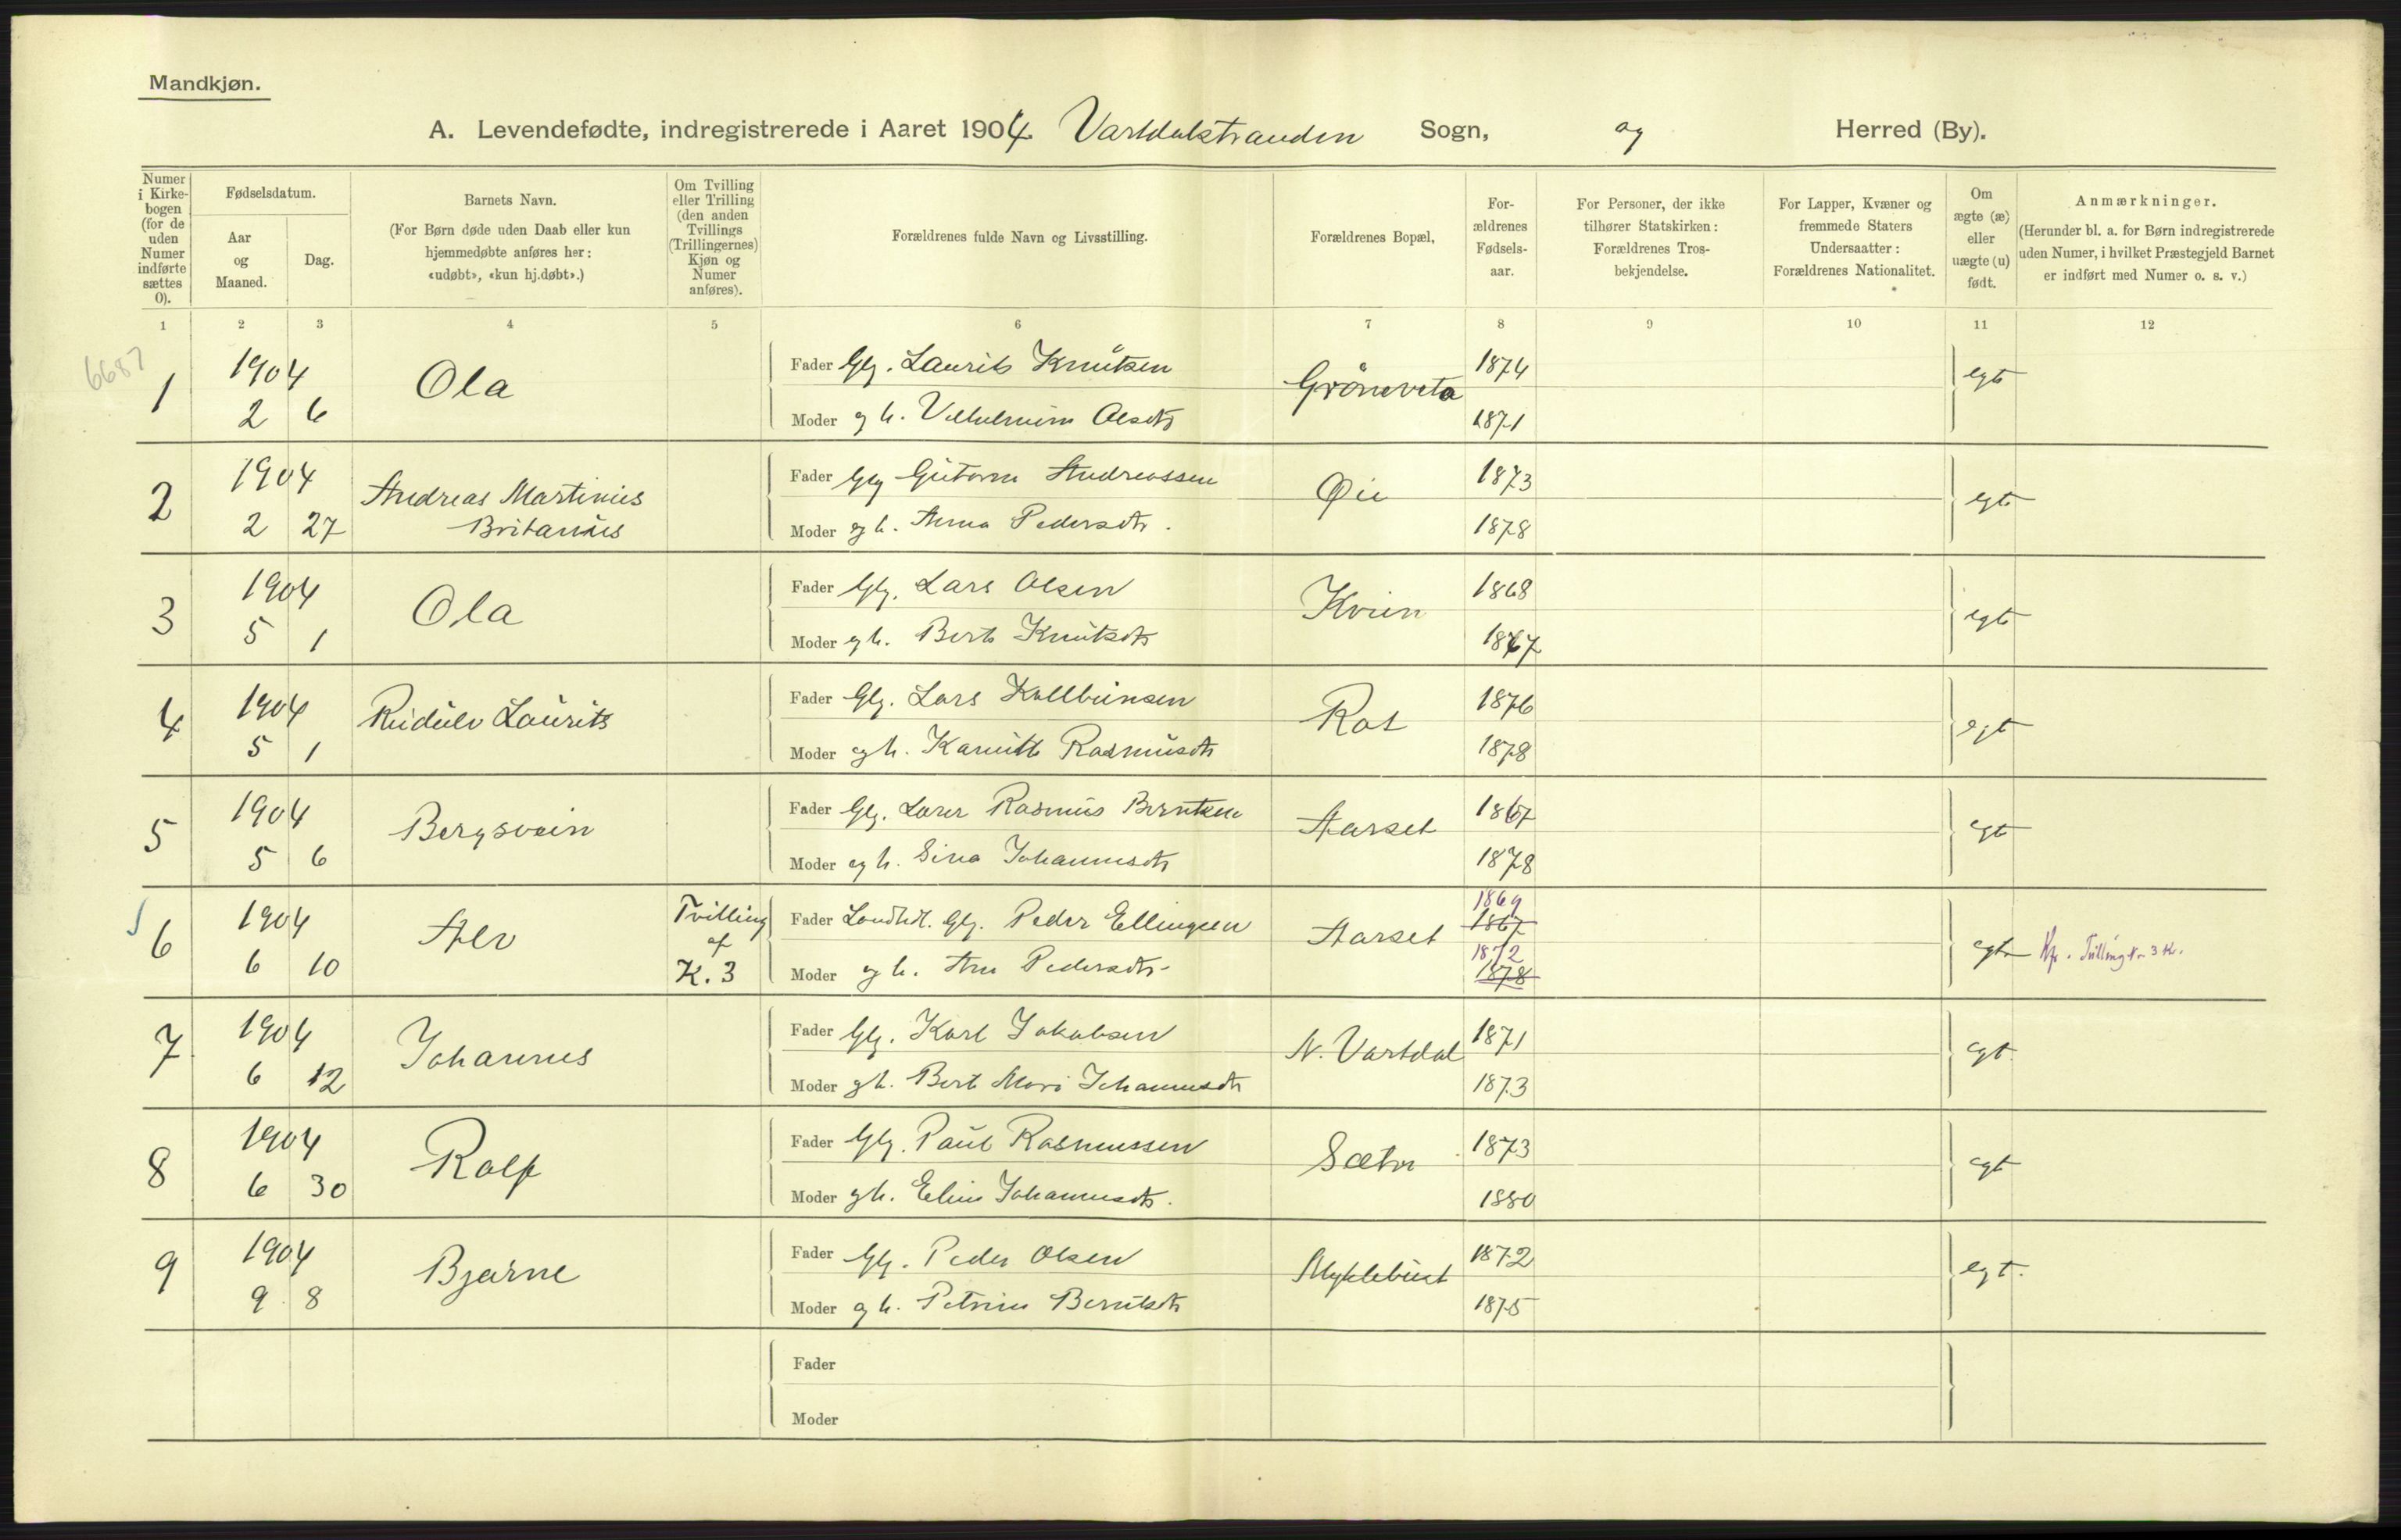 Mandkjøn.
A. Levendefødte, indregistrerede i Aaret 1904. Vartdalstranden Sogn, og Herred (By).
Numer i Kirkebogen (for de uden Numer indførte sættes 0).
Fødselsdatum.
Aar og Maaned.
Dag.
Barnets Navn.
(For Børn døde uden Daab eller kun hjemmedøbte anføres her: «udøbt», «kun hj.døbt».)
Om Tvilling eller Trilling (den anden Tvillings (Trillingernes) Kjøn og Numer anføres).
Forældrenes fulde Navn og Livsstilling.
Forældrenes Bopæl,
Forældrenes Fødselsaar.
For Personer, der ikke tilhører Statskirken: Forældrenes Trosbekjendelse.
For Lapper, Kvæner og fremmede Staters Undersaatter: Forældrenes Nationalitet.
Om ægte (æ) eller uægte (u) født.
Anmærkninger.
(Herunder bl. a. for Børn indregistrerede uden Numer, i hvilket Præstegjeld Barnet er indført med Numer o. s. v.)
1 2 3 4 5 6 7 8 9 10 11 12
6687
1 1904 2 6 Ola
Fader Glg. Laurits Knutsen Grøneveta 1874 egt
Moder g h. Vilhelmine Olsdtr 1871
2 1904 2 27 Andreas Martinus Britanius
Fader Glg Gutorm Andreassen Øie 1873 egt
Moder g h. Anna Pedersdtr. 1878
3 1904 5 1 Ola
Fader Glg. Lars Olsen Kvien 1868 egt
Moder g h. Berte Knutsdtr 1867
4 1904 5 1 Ruidulv Laurits
Fader Glg. Lars Kolbeinsen Rot 1876 egt
Moder g h. Karnitte Rasmusdtr 1878
5 1904 5 6 Bergsvein
Fader Glg. Lærer Rasmus Berntsen Aarset 1867 egt
Moder g h. Sina Johannesdtr 1878
6 1904 6 10 Alv Tvilling af K. 3
Fader Landhdl. Glg. Peder Ellingsen Aarset 1869 1867 egt Kp. Tvilling t. 3 K.
Moder g h. Ane Pedersdtr 1872 1878
7 1904 6 12 Johannes
Fader Glg. Karl Jakobsen N. Vartdal 1871 egt.
Moder g h. Berte Mari Johannesdtr 1873
8 1904 6 30 Rolf
Fader Glg. Paul Rasmussen Sætre 1873 egt
Moder g h. Eline Johannesdtr. 1880
9 1904 9 8 Bjarne
Fader Glg. Peder Olsen Myklebust 1872 egt.
Moder g h. Petrine Berntsdtr 1875
Fader
Moder